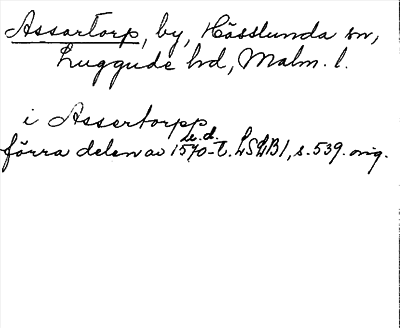 Assartorp, by, Hässlunda sn,
Luggude hd, Malm. l.
i Assertorpp
u.d.
förra delen av 1570-t. LSÄB1, s. 539. orig.